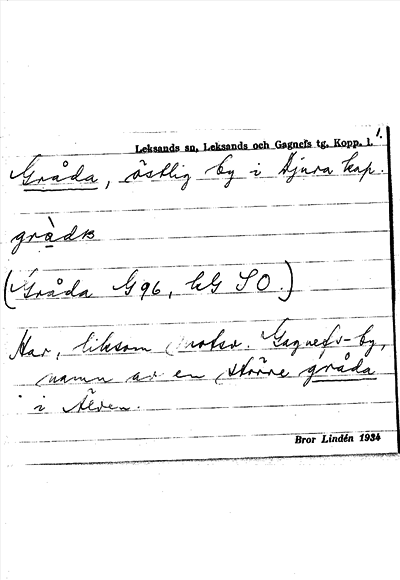 1.
Leksands sn, Leksands och Gagnefs tg. Kopp. l.
Gråda, östlig by i Djura kap.
gràdɒ
(Gråda G96, kG SO.)
Har, liksom motsv. Gagnefs-by,
namn av en större gråda
i Älven.
Bror Lindén 1934